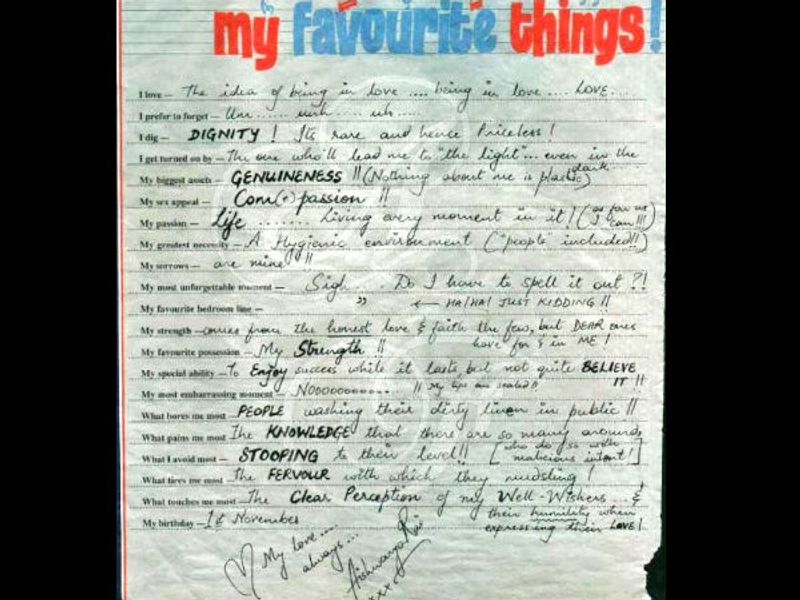 my favourite things!
I love — The idea of being in love .... being in love .... LOVE....
I prefer to forget — Um ...... umh ..... uh .....
I dig — DIGNITY! Its rare and hence Priceless!
I get turned on by — The one who'll lead me to "the light"... even in the dark
My biggest assets — GENUINENESS!! (Nothing about me is plastic)
My sex appeal — Com(+)passion!!
My passion — Life ........ Living every moment in it! (as far as I can!!!)
My greatest necessity — A Hygienic environment ("people" included!!)
My sorrows — are mine!!
My most unforgettable moment — Sigh... Do I have to spell it out?!
My favourite bedroom line — " ← HA! HA! JUST KIDDING!!
My strength — comes from the honest love & faith the few, but DEAR ones have for & in ME!
My favourite possession — My Strength!!
My special ability — To Enjoy success while it lasts but not quite BELIEVE IT!!
My most embarrassing moment — Nooooooooo....!! My lips are sealed!!
What bores me most — PEOPLE washing their dirty linen in public!!
What pains me most — The KNOWLEDGE that there are so many around,
[who do so with malicious intent!]
What I avoid most — STOOPING to their level!!
What tires me most — The FERVOUR with which they mudsling!
What touches me most — The Clear Perception of my Well-Wishers... & their humility when expressing their LOVE!
My birthday — 1st November
My love....
always...
Aishwarya Rai
xxx